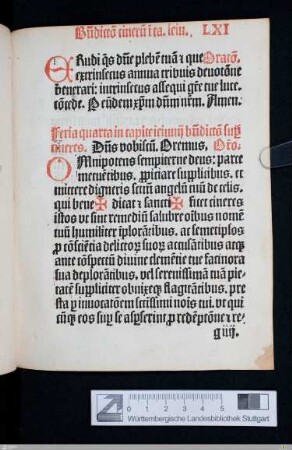 Bn̄dictō cinerū ī ca. ieiu. LXI
ERudi q̄s dn̄e plebē tuā ⁊ que Oratō.
extrinsecus annua tribuis deuotōne
venerari: intrinsecus assequi gr̄e tue luce
cōcede. P eūdem xp̄m dūm nr̄m. Amen.
Feria quarta in capite ieiunij bn̄dictō sup̄
cineres. Dūs vobiscū. Oremus. Orō.
OMnipotens sempiterne deus: parce
metuētibus, ꝓpiciare supplicibus. et
mittere digneris sctm̄ angelū tuū de celis,
qui bene✠dicat ⁊ sancti✠ficet cineres
istos vt sint remediū salubre oībus nomē
tuū humiliter īplorātibus, ac semetipsos
ꝓ cōsciētia delictoꝝ suoꝝ accusātibus atqꝫ
ante cōspectū diuine clemētie tue facinora
sua deplorātibus, vel serenissimā tuā pie
tatē suppliciter obnixeqꝫ flagitātibus. pre
sta ꝑ inuocatōem sctissimi noīs tui. vt qui
cūqꝫ eos suꝑ se asꝑserint, ꝓ redēptōne ⁊ re
g iiij.
0 1 2 3 4 5
Württembergische Landesbibliothek Stuttgart